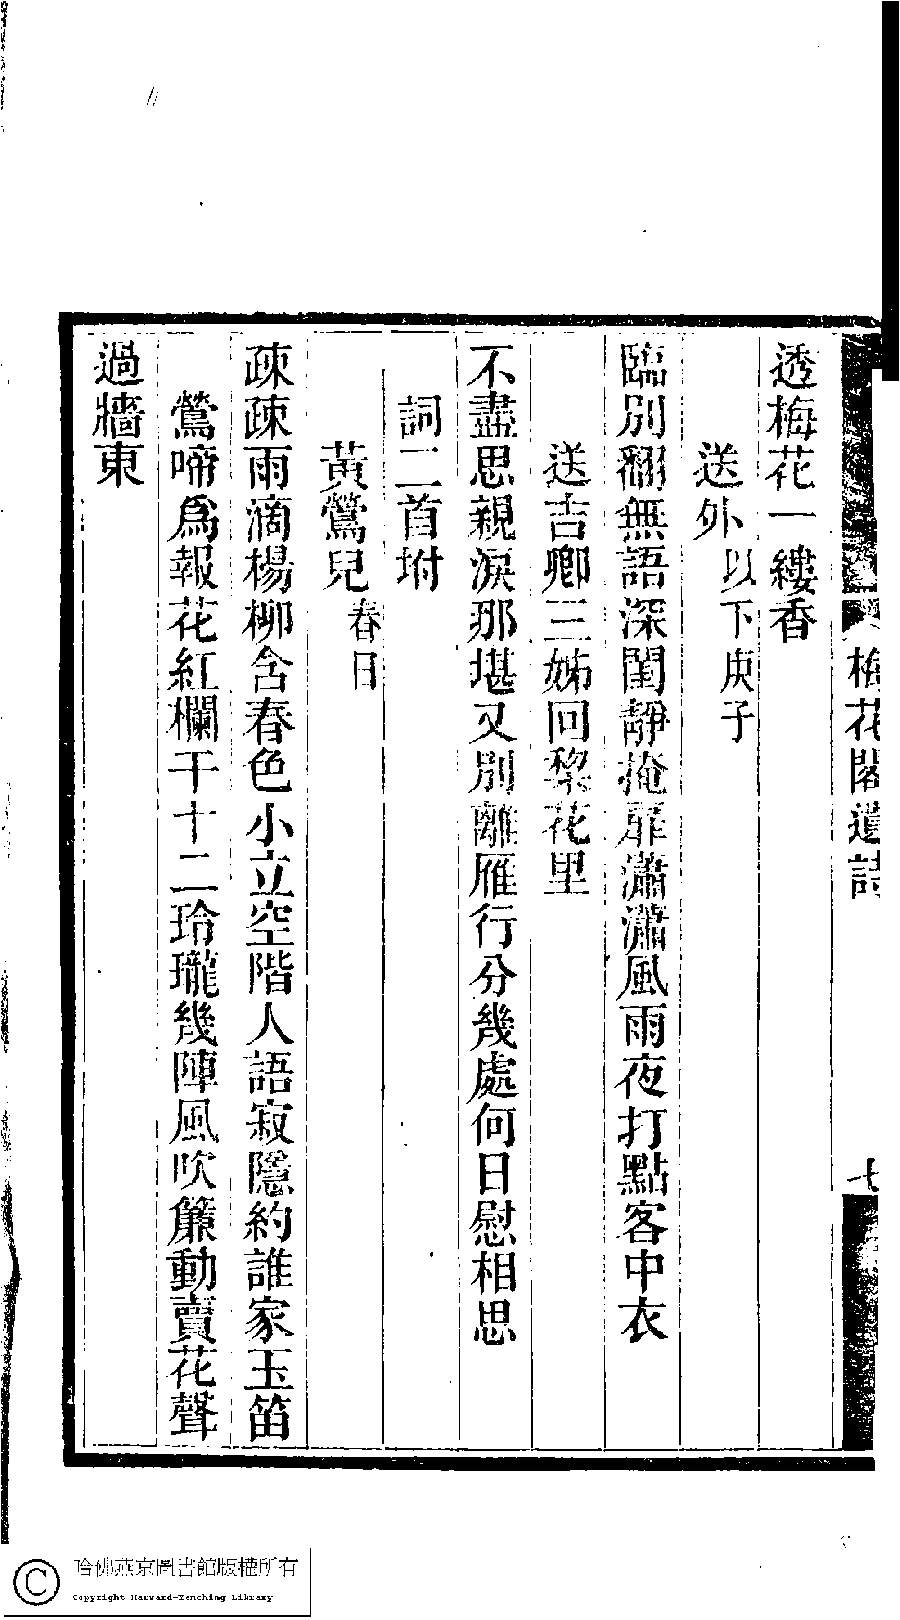 梅花閣遺詩
七
透梅花一縷香
送外以下庚子
臨別翻無語深閨靜掩扉瀟瀟風雨夜打點客中衣
送吉卿三姊回黎花里
不盡思親淚那堪又別離雁行分幾處何日慰相思
詞二首坿
黃鶯兒春日
疎疎雨滴楊柳含春色小立空階人語寂隱約誰家玉笛
鶯啼爲報花紅欄干十二玲瓏幾陣風吹簾動賣花聲
過牆東
哈佛燕京圖書館版權所有
Copyright Harvard-Yenching Library